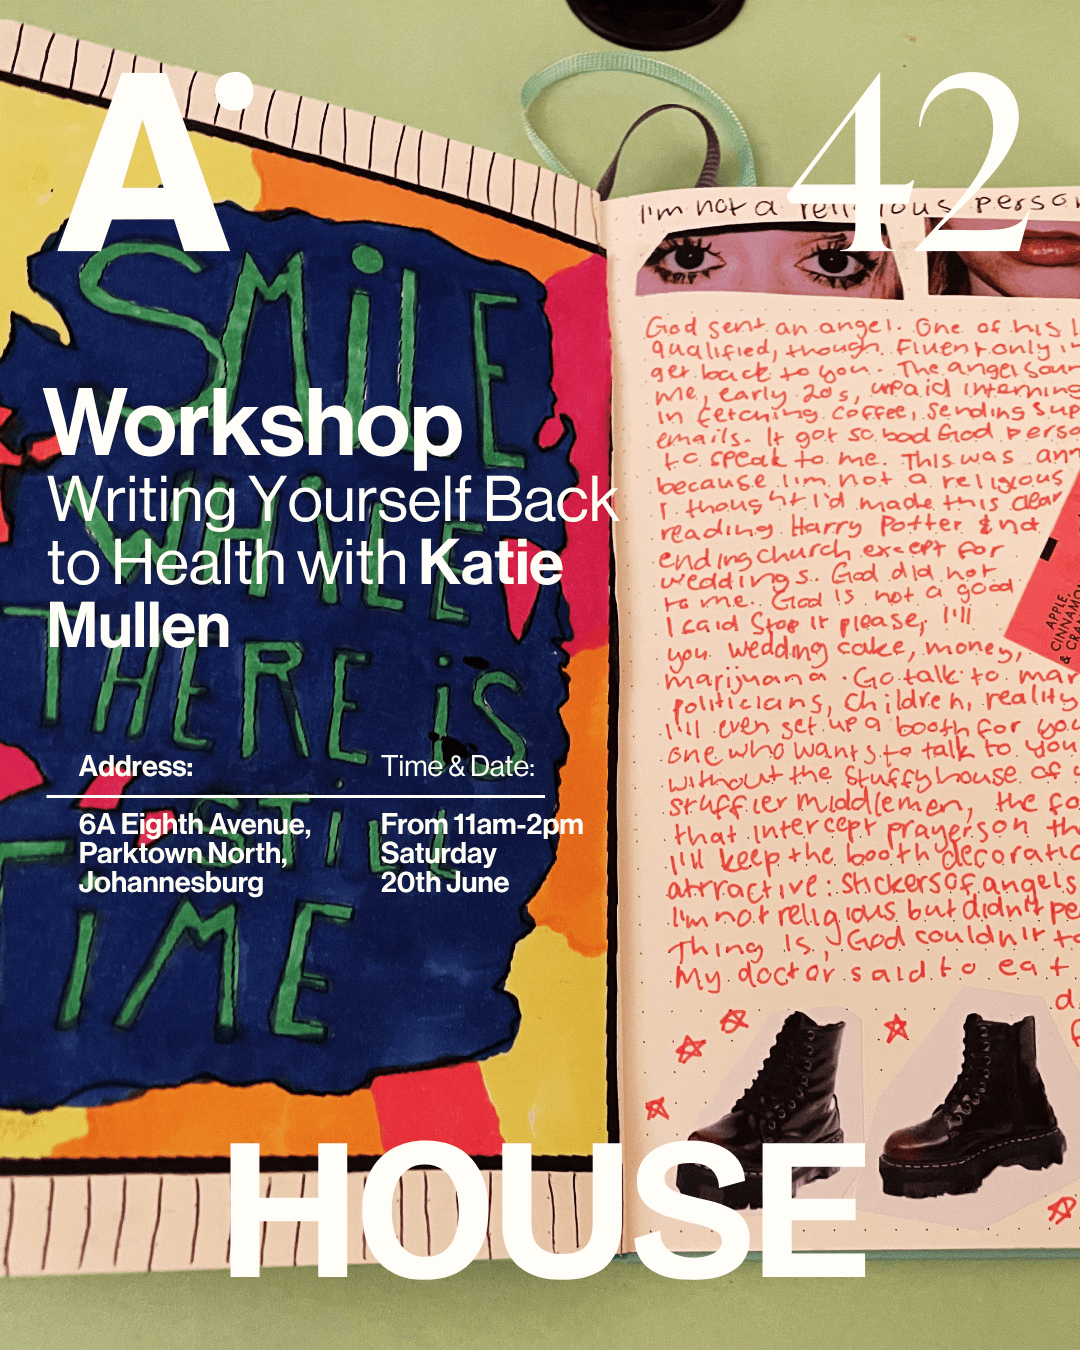 A
42
SMiLE
WHILE
THERE iS
STiLL
TiME
Workshop
Writing Yourself Back
to Health with Katie
Mullen
Address:
6A Eighth Avenue,
Parktown North,
Johannesburg
Time & Date:
From 11am-2pm
Saturday
20th June
I'm not a religious person
God sent an angel. One of his
qualified, though. Fluent only in
get back to you. The angel
me, early 20s, unpaid interning
in fetching coffee, sending
emails. It got so bad God
to speak to me. This was
because I'm not a religious
I thought I'd made this clear
reading Harry Potter and not
ending church except for
weddings. God did not
to me. God is not a good
I said stop it please, I'll
you wedding cake, money,
marijuana. Go talk to
politicians, children, reality
I'll even set up a booth for you
one who wants to talk to you
without the stuffy house of
stuffier middlemen, the
that intercept prayers on
I'll keep the booth
attractive: stickers of angels
I'm not religious but didn't
Thing is, God couldn't
My doctor said to eat
APPLE,
CINNAMON
&
HOUSE